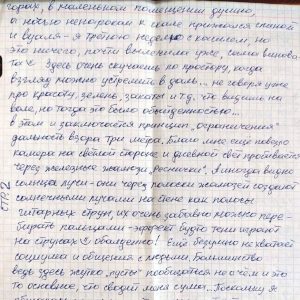 горах, в маленьком помещении душно,
а ночью ненароком к скале прижмешься спиной
и вуаля - я третью неделю с кашлем, но
это ничего, почти вылечила уже, сама винова-
та Здесь очень скучаешь по простору, когда
взгляд можно устремить в даль... не говоря уже
про красоту, зелень, закаты и т.д. что видишь на
воле, но тогда это было обыденностью...
в том и заключается принцип „ограничения"
дальность взора три метра. Благо мне ещё повезло
камера на светлой стороне и дневной свет протискивается
через железные жалюзи „Реснички". А иногда видно
солнца лучи - они через полоски жалюзей создают
солнечными лучами на стене как полосы
гитарных струн, их очень забавно можно пере-
бирать пальцами - эффект будто тени играют
на струнах Обалденно! Ещё безумно не хватает
социума и общения с людьми. Большинство
ведь здесь жутко „пусты" пообщаться не о чем и это
то основное, что сводит меня с ума. Поскольку я
СТР. 2